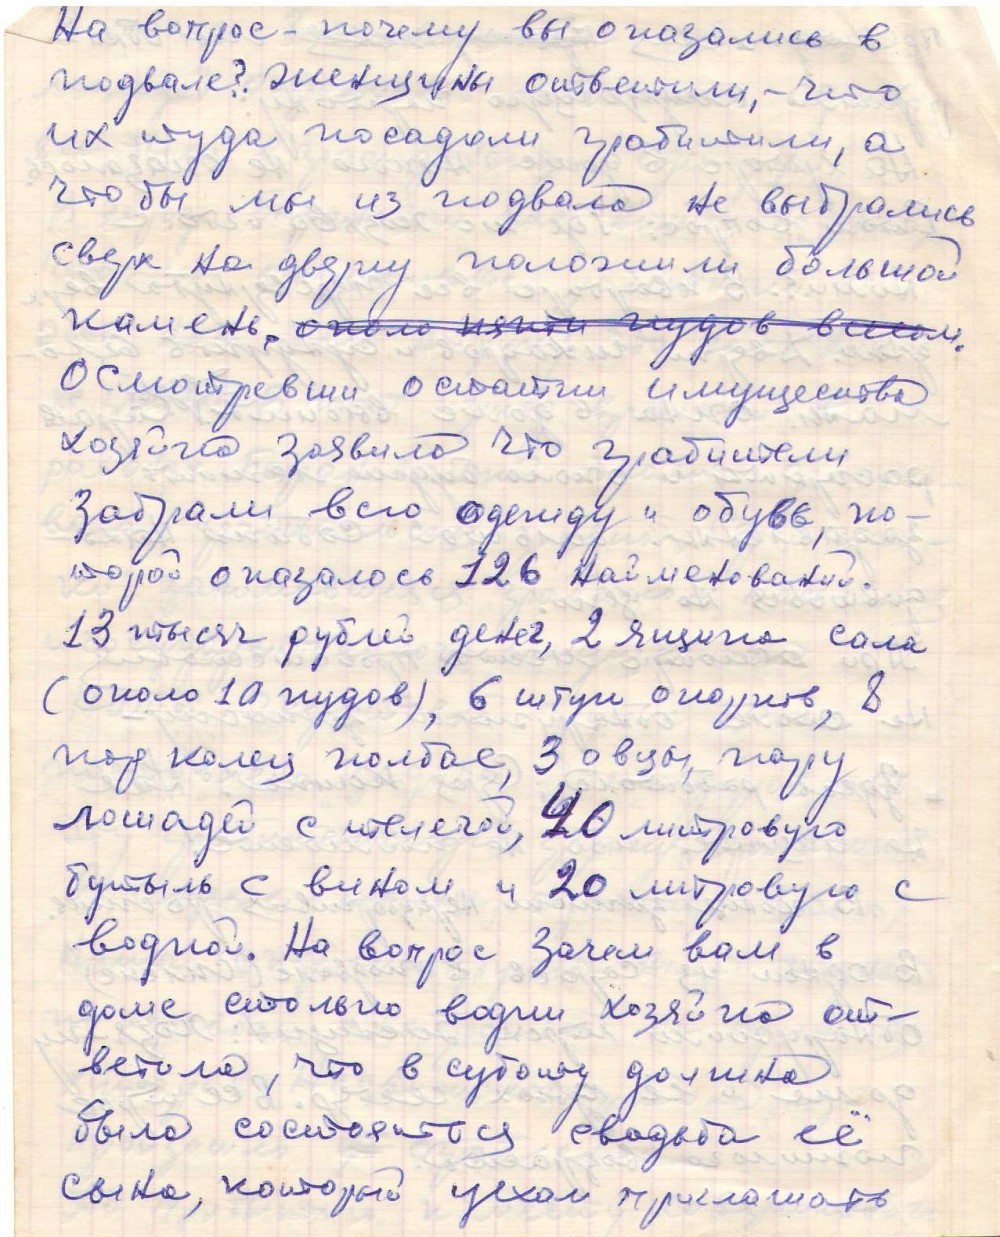 На вопрос - почему вы оказались в
подвале? Женщины ответили, - что
их туда посадили грабители, а
чтобы мы из подвала не выбрались
сверх на дверку положили большой
камень, около пяти пудов весом.
Осмотревши остатки имущества
хозяйка заявила что грабители
забрали всю одежду и обувь, ко-
торой оказалось 126 наименований.
13 тысяч рублей денег, 2 ящика сала
(около 10 пудов), 6 штук окороков, 8
пар колец колбас, 3 овцы, пару
лошадей с телегой, 40 литровую
бутыль с вином и 20 литровую с
водкой. На вопрос зачем вам в
доме столько водки хозяйка от-
ветила, что в субботу должна
была состояться свадьба её
сына, который уехал приглашать